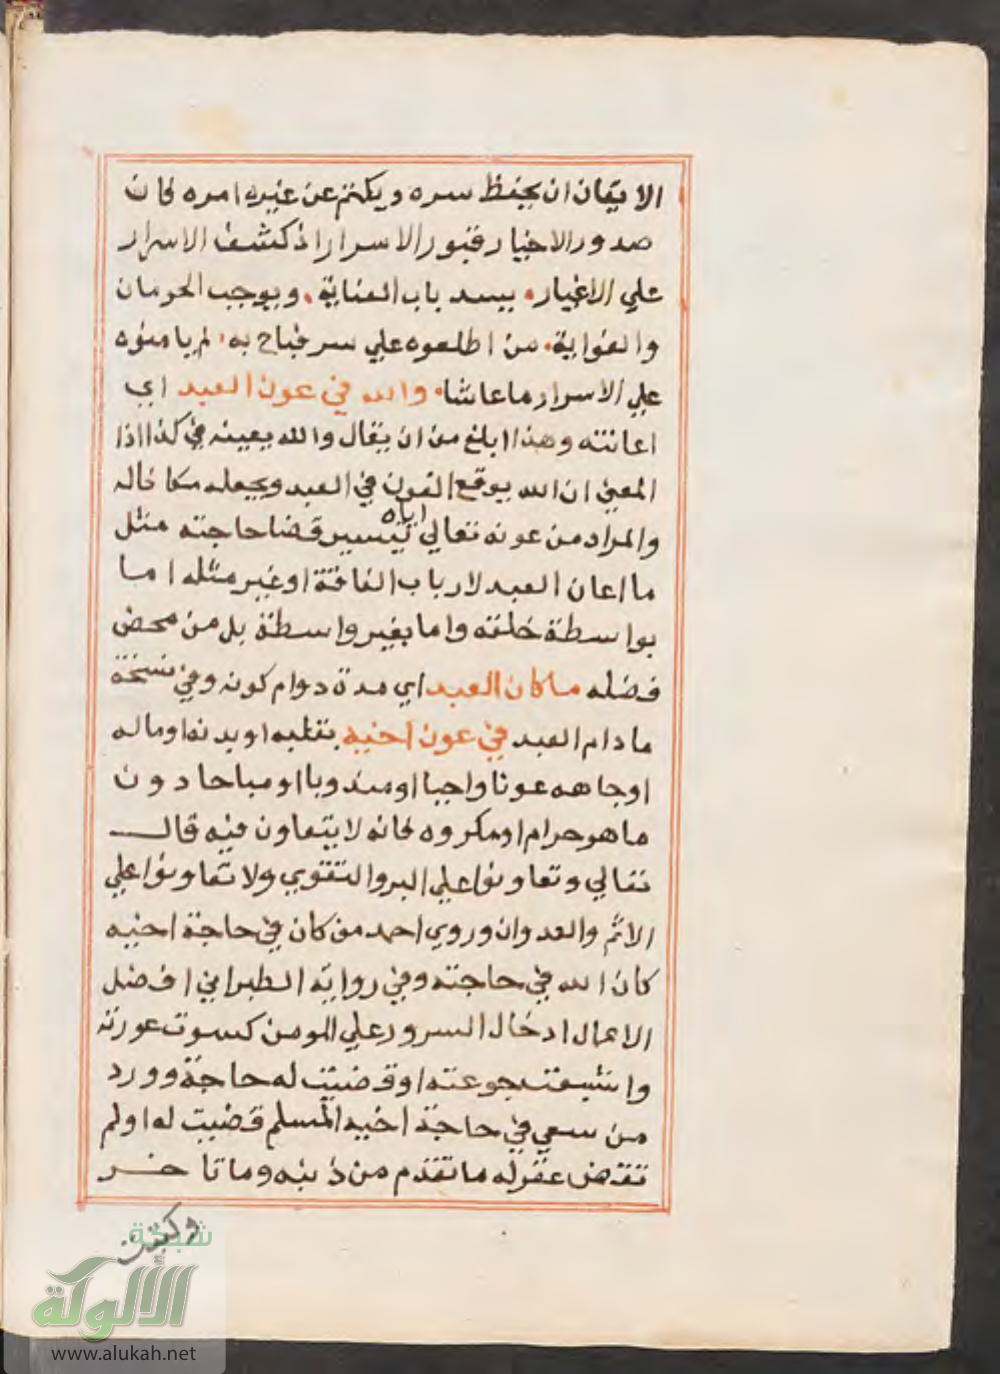 الايقان ان يحفظ سره ويكتم عن غيره امره فان
صدور الاخيار قبور الاسرار اذ كشف الاسرار
علي الاغيار. يسد باب العناية. ويوجب الحرمان
والغواية. من اطلعوه علي سر فباح به. لم يامنوه
علي الاسرار ما عاشا. والله في عون العبد اي
اعانته وهذا ابلغ من ان يقال والله يعينه في كذا اذ
المعني ان الله يوقع العون في العبد ويجعله مكانا له
والمراد من عونه تعالي اياه تيسير قضا حاجته مثل
ما اعان العبد لارباب الفاقة او غير مثله اما
بواسطة خلقه واما بغير واسطة بل من محض
فضله ما كان العبد اي مدة دوام كونه وفي نسخة
ما دام العبد في عون اخيه بقلبه او بدنه او ماله
او جاهه عونا واجبا او مندوبا او مباحا دون
ما هو حرام او مكروه فانه لا يتعاون فيه قال
تعالي وتعاونوا علي البر والتقوي ولا تعاونوا علي
الاثم والعدوان وروي احمد من كان في حاجة اخيه
كان الله في حاجته وفي رواية الطبراني افضل
الاعمال ادخال السرور علي المومن كسوت عورته
واشبعت جوعته او قضيت له حاجة وورد
من سعي في حاجة اخيه المسلم قضيت له او لم
تقض غفر له ما تقدم من ذنبه وما تاخر
وكتب
شبكة
الألوكة
www.alukah.net